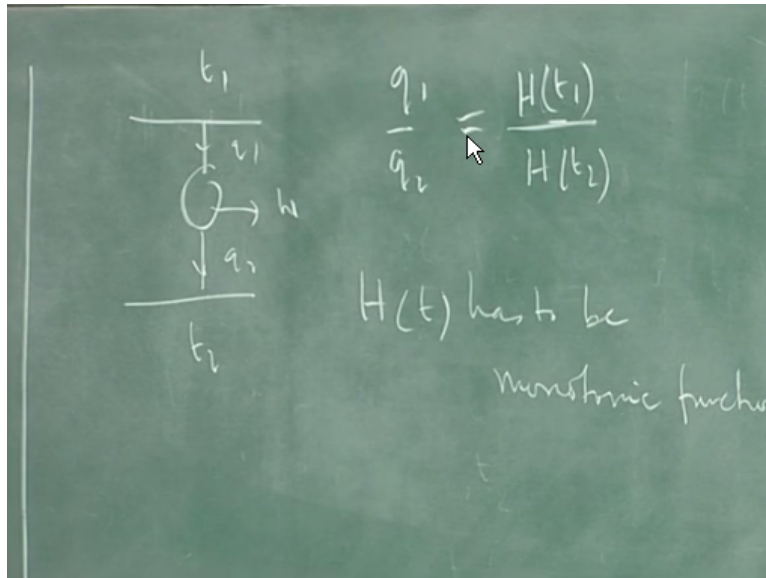 t₁
q₁
w
q₂
t₂
q₁/q₂ = H(t₁)/H(t₂)
H(t) has to be
monotonic functio